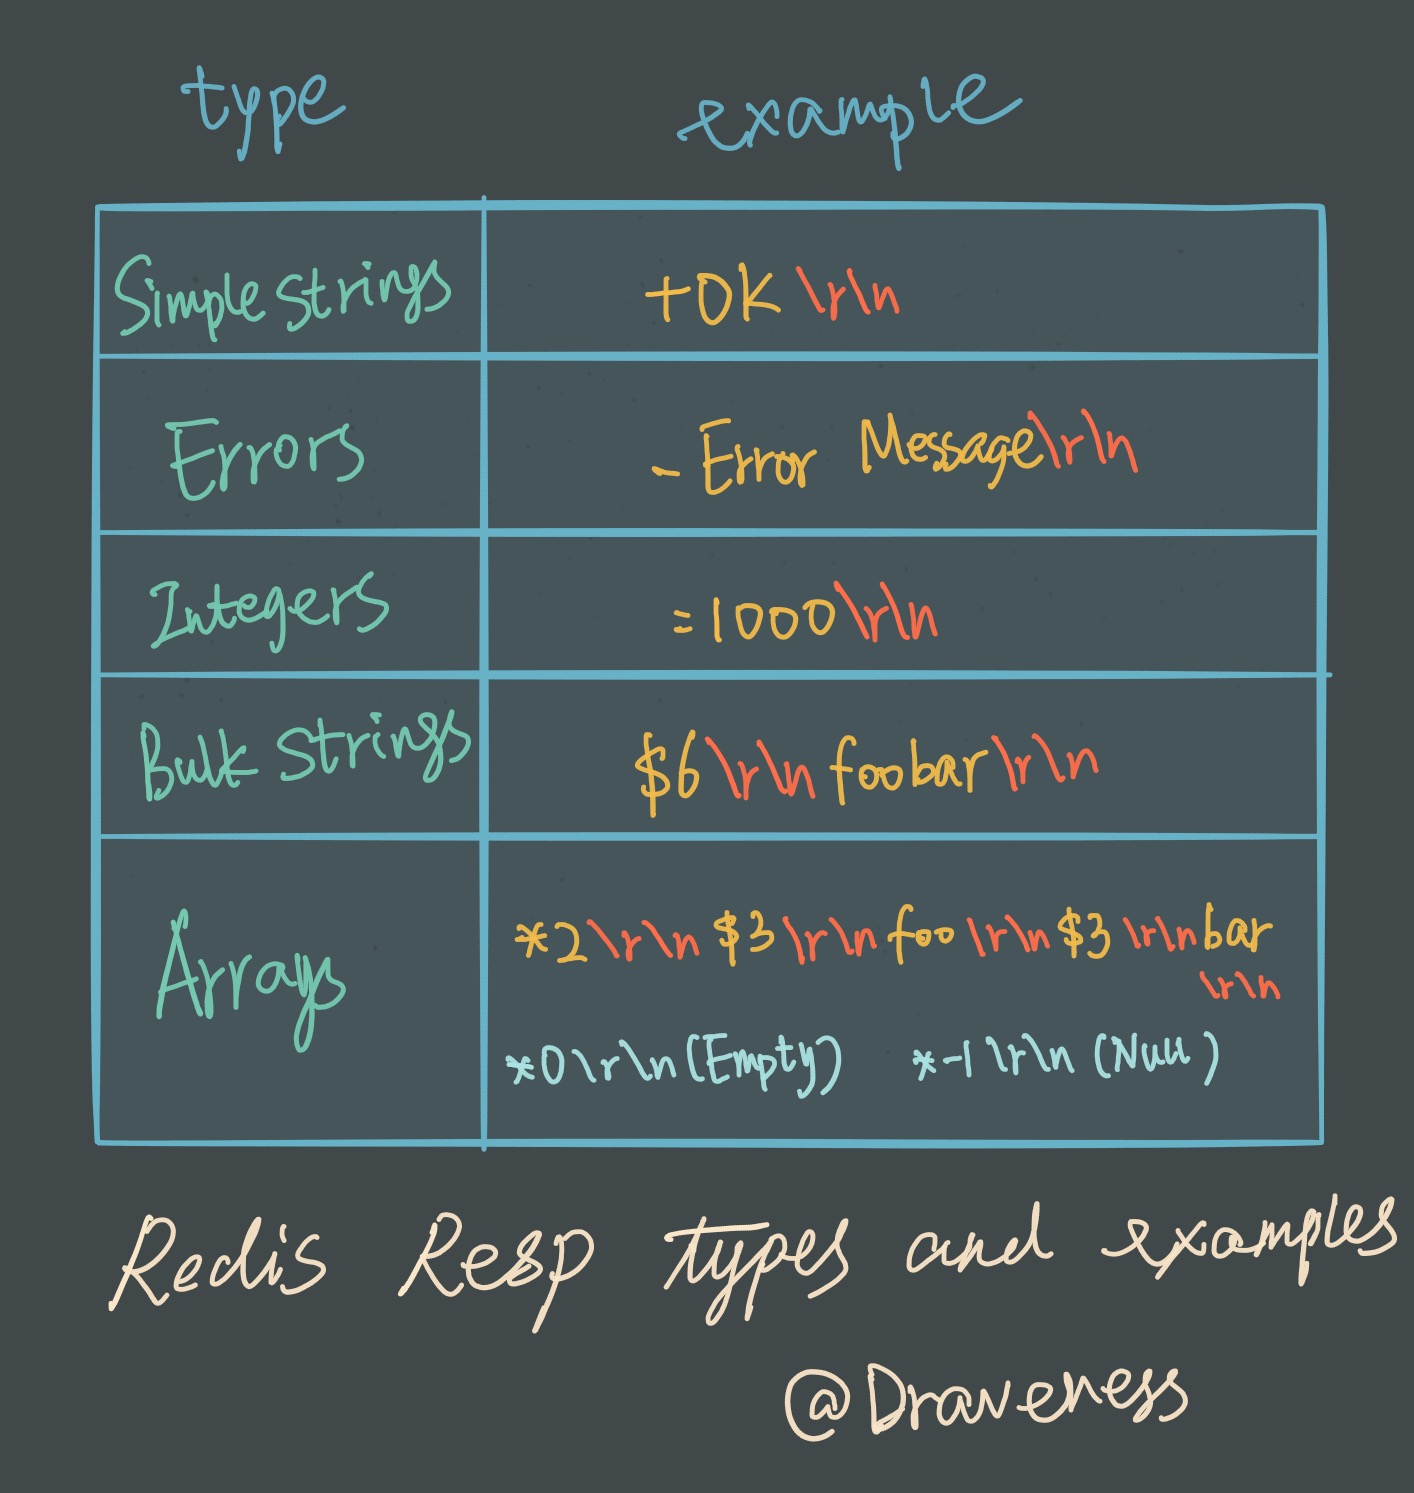 type example
Simple Strings +OK\r\n
Errors -Error Message\r\n
Integers =1000\r\n
Bulk Strings $6\r\nfoobar\r\n
Arrays *2\r\n$3\r\nfoo\r\n$3\r\nbar
\r\n
*0\r\n(Empty) *-1\r\n(Null)
Redis Resp types and examples
@Draveness